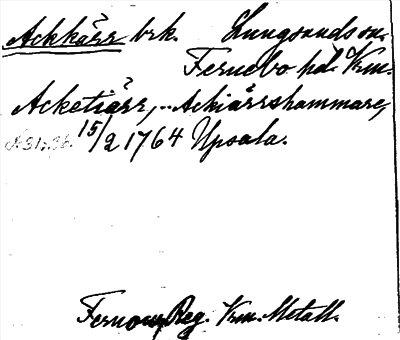 Ackkärr brk. Lungsunds sn.
Fernebo hd. Vrm.
Acketiärr, Ackiärrshammare,
15/2 1764 Upsala.
Reg. Vrm. Metall.